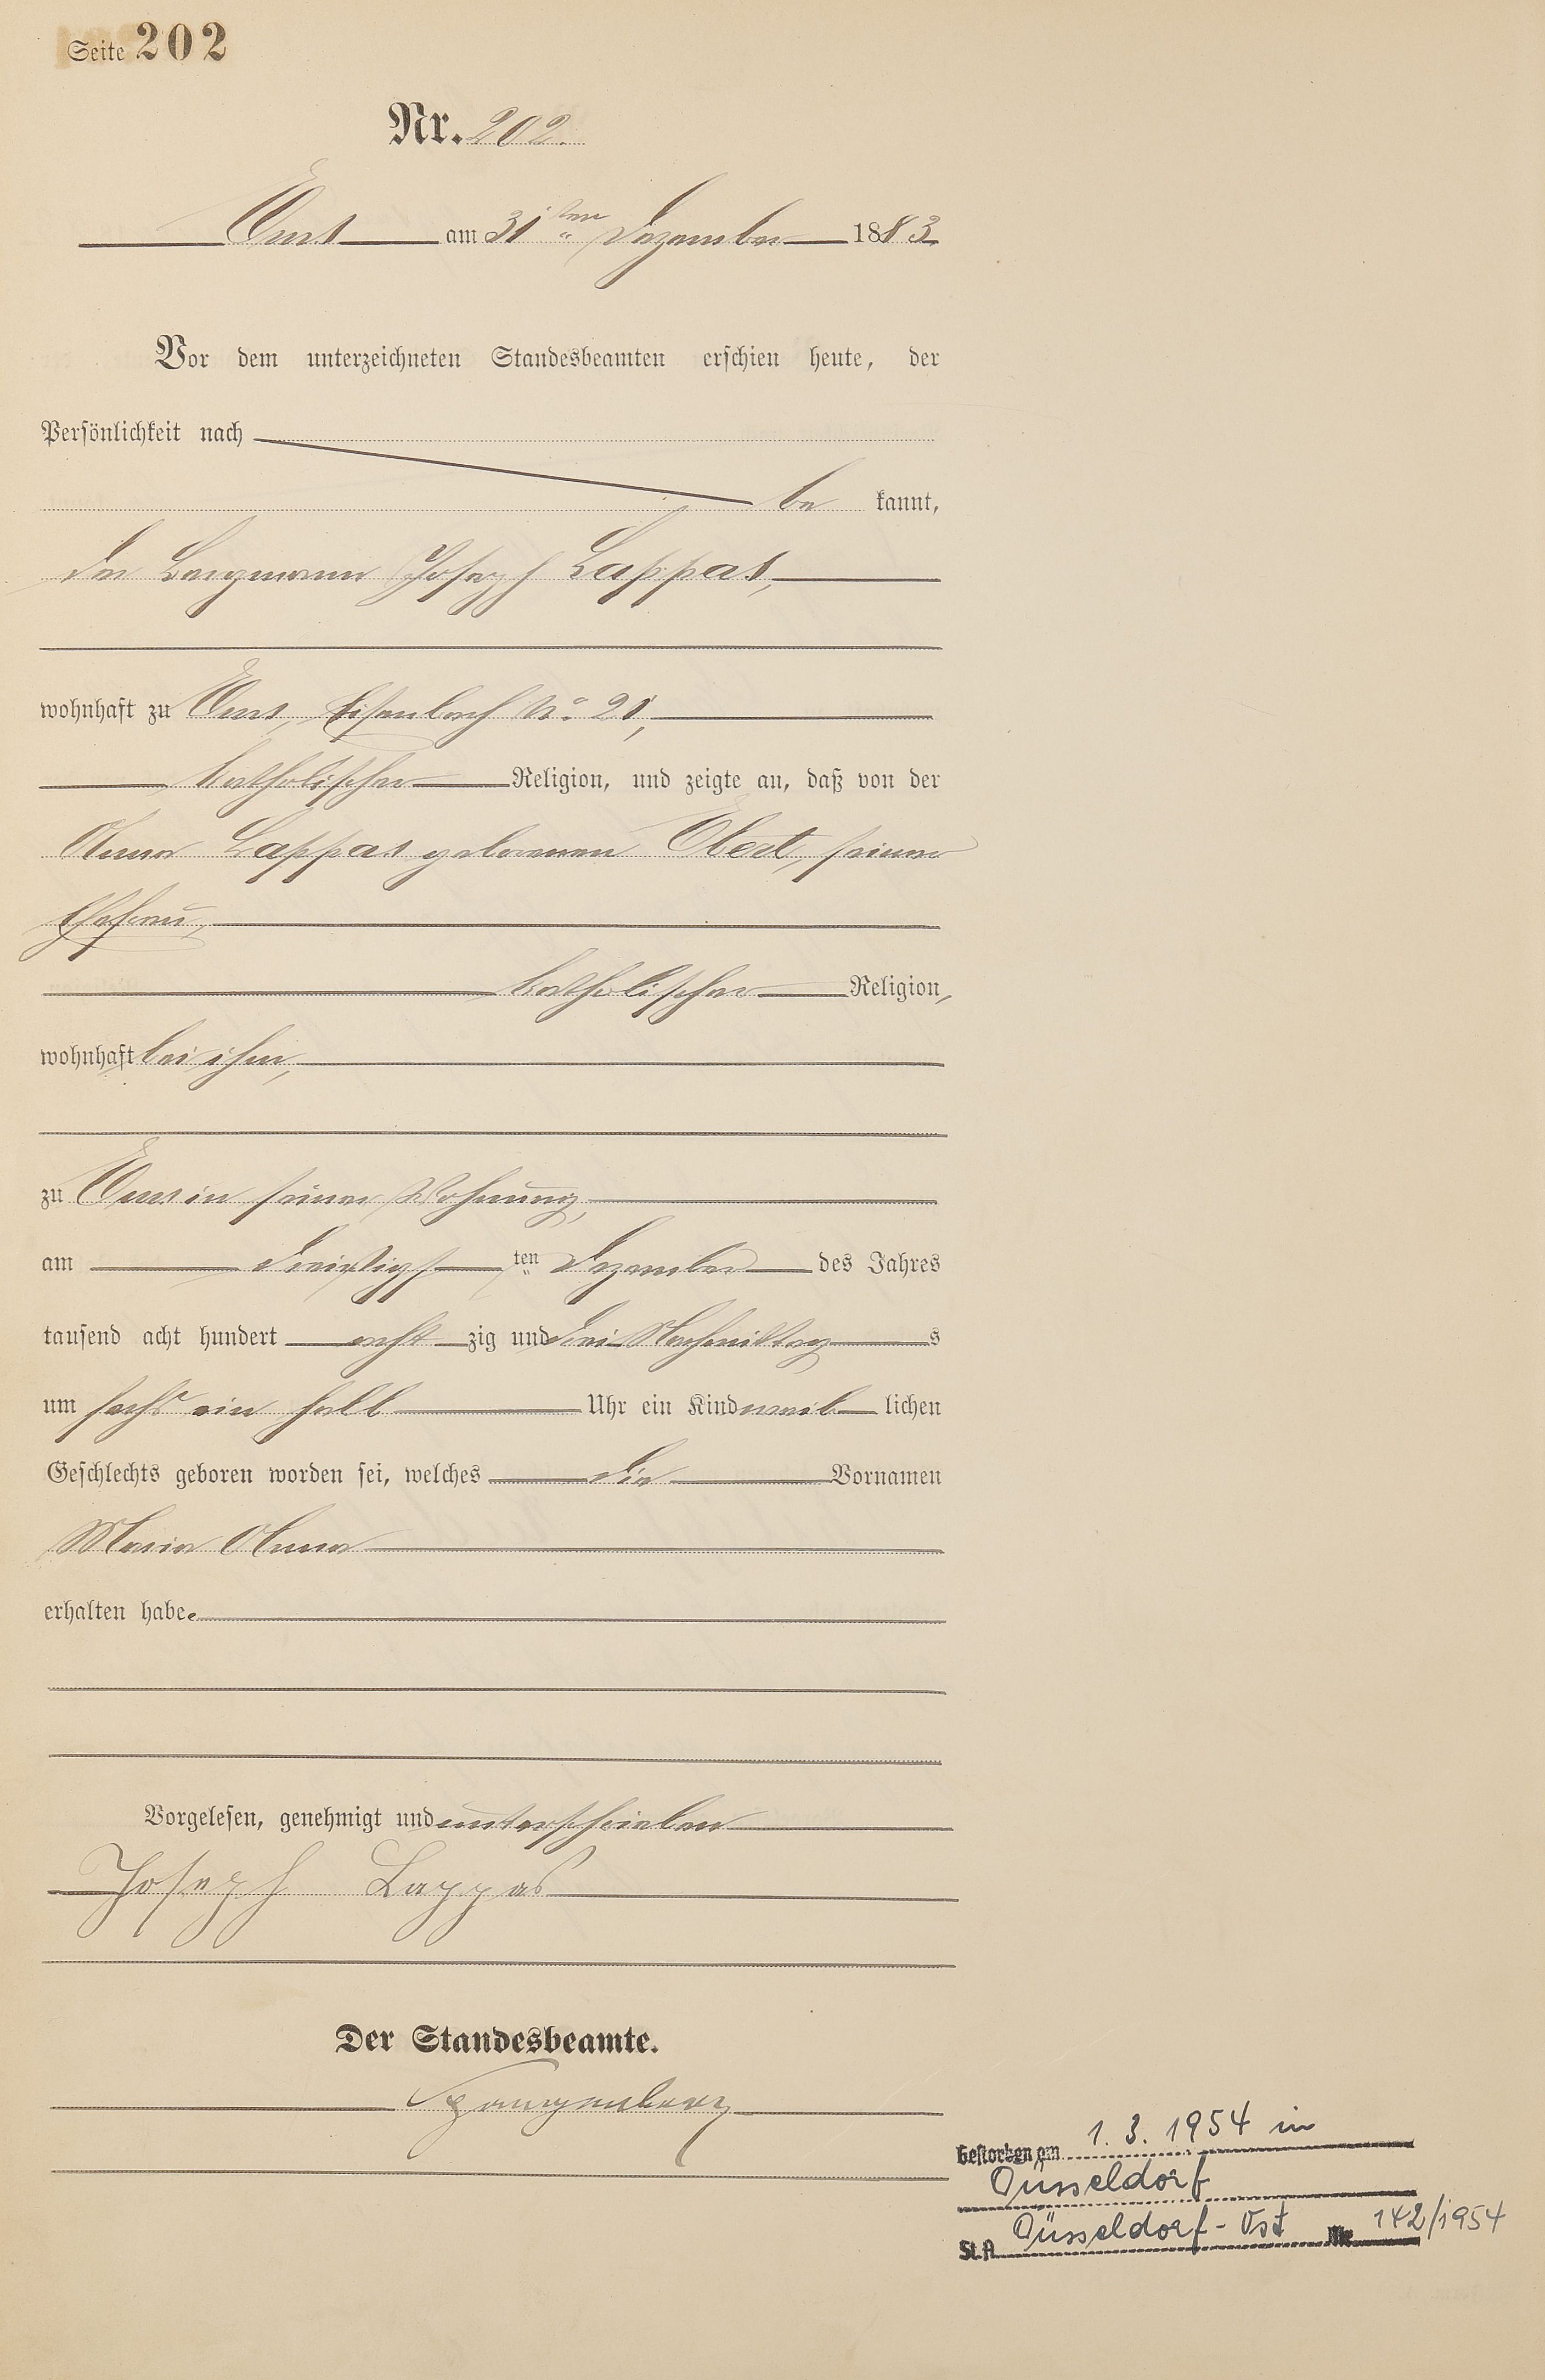 Seite 202
Nr. 202.
Ems am 31ten Dezember 1883
Vor dem unterzeichneten Standesbeamten erschien heute, der
Persönlichkeit nach
be kannt,
der Bergmann Joseph Lappas,
wohnhaft zu Ems, Eisenbach No. 21,
katholischer Religion, und zeigte an, daß von der
Anna Lappas geborenen Ebert, seiner
Ehefrau,
katholischer Religion,
wohnhaft bei ihm,
zu Ems in seiner Wohnung,
am dreißigsten Dezember des Jahres
tausend acht hundert acht zig und drei Nachmittags
um sechs ein halb Uhr ein Kind weiblichen
Geschlechts geboren worden sei, welches die Vornamen
Maria Anna
erhalten habe.
Vorgelesen, genehmigt und unterschrieben
Joseph Lappas
Der Standesbeamte.
Spangenberg
Gestorben am 1. 3. 1954 in
Düsseldorf
St. A Düsseldorf-Ost Nr. 142/1954